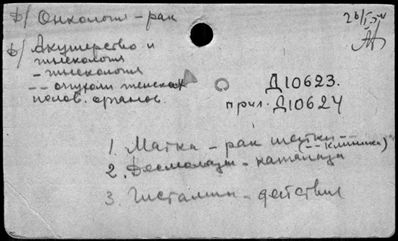 б/ Онкология – рак
б/ Акушерство и
гинекология
– гинекология
– – опухоли женских
полов. органов.
Д10623.
прил. Д10624
1. Матка – рак шейки – –
(– – Клиника)
2. Десмолазы – катализ
3. Гистамин – действия